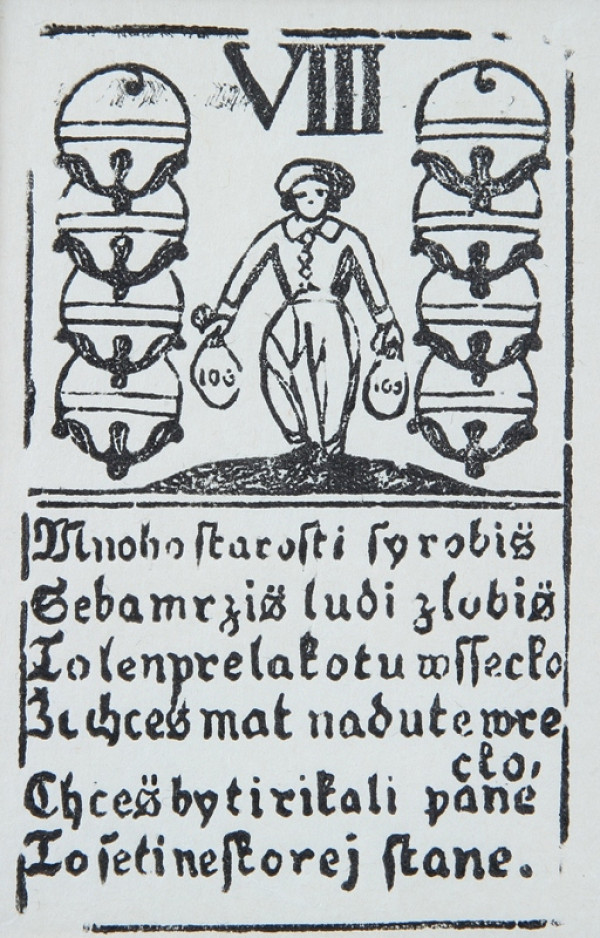 VIII
100
100
Mnoho starosti sy robiš
Sebamrziš ludi zlobiš
To len pre lakotu wssecko
Že chceš mat nadute wre
cko,
Chceš by ti rikali pane
To se ti neskorej stane.